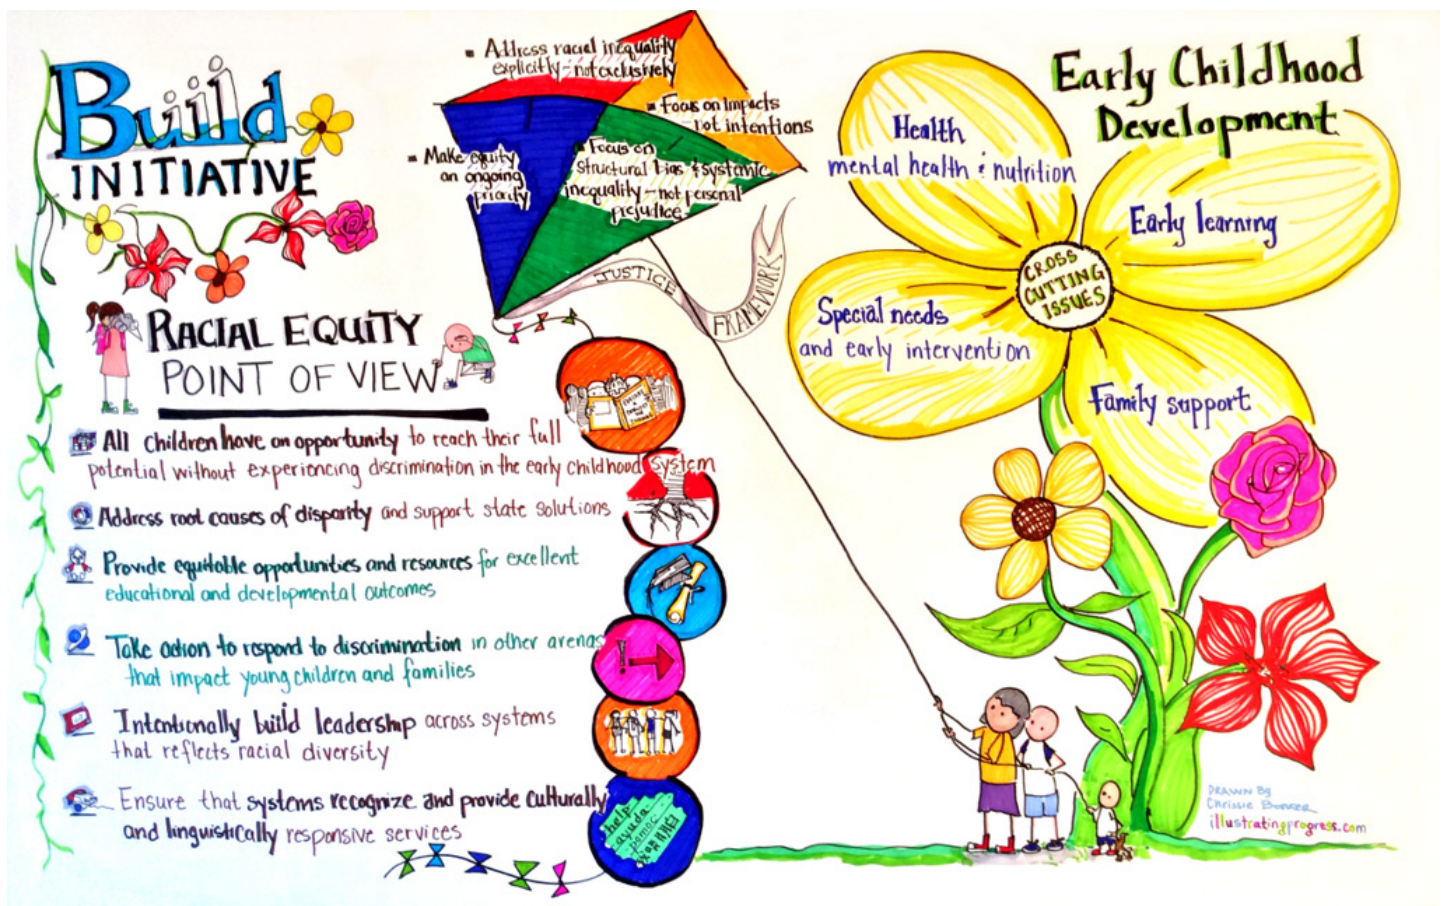 Build
INITIATIVE
RACIAL EQUITY
POINT OF VIEW
All children have an opportunity to reach their full
potential without experiencing discrimination in the early childhood system
Address root causes of disparity and support state solutions
Provide equitable opportunities and resources for excellent
educational and developmental outcomes
Take action to respond to discrimination in other arenas
that impact young children and families
Intentionally build leadership across systems
that reflects racial diversity
Ensure that systems recognize and provide culturally
and linguistically responsive services
Address racial inequality
explicitly - not exclusively
Focus on Impacts
- not intentions
Make equity
an ongoing
priority
Focus on
Structural bias & systemic
inequality - not personal
prejudice
JUSTICE
FRAMEWORK
help
ayuda
pomoc
Early Childhood
Development
Health
mental health & nutrition
Early learning
CROSS
CUTTING
ISSUES
Special needs
and early intervention
Family support
DRAWN By
Chrissie
illustratingprogress.com